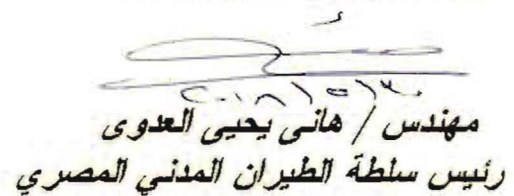 ٢٠١٨/٥/٣٠
مهندس / هانى يحيى العدوى
رئيس سلطة الطيران المدني المصري